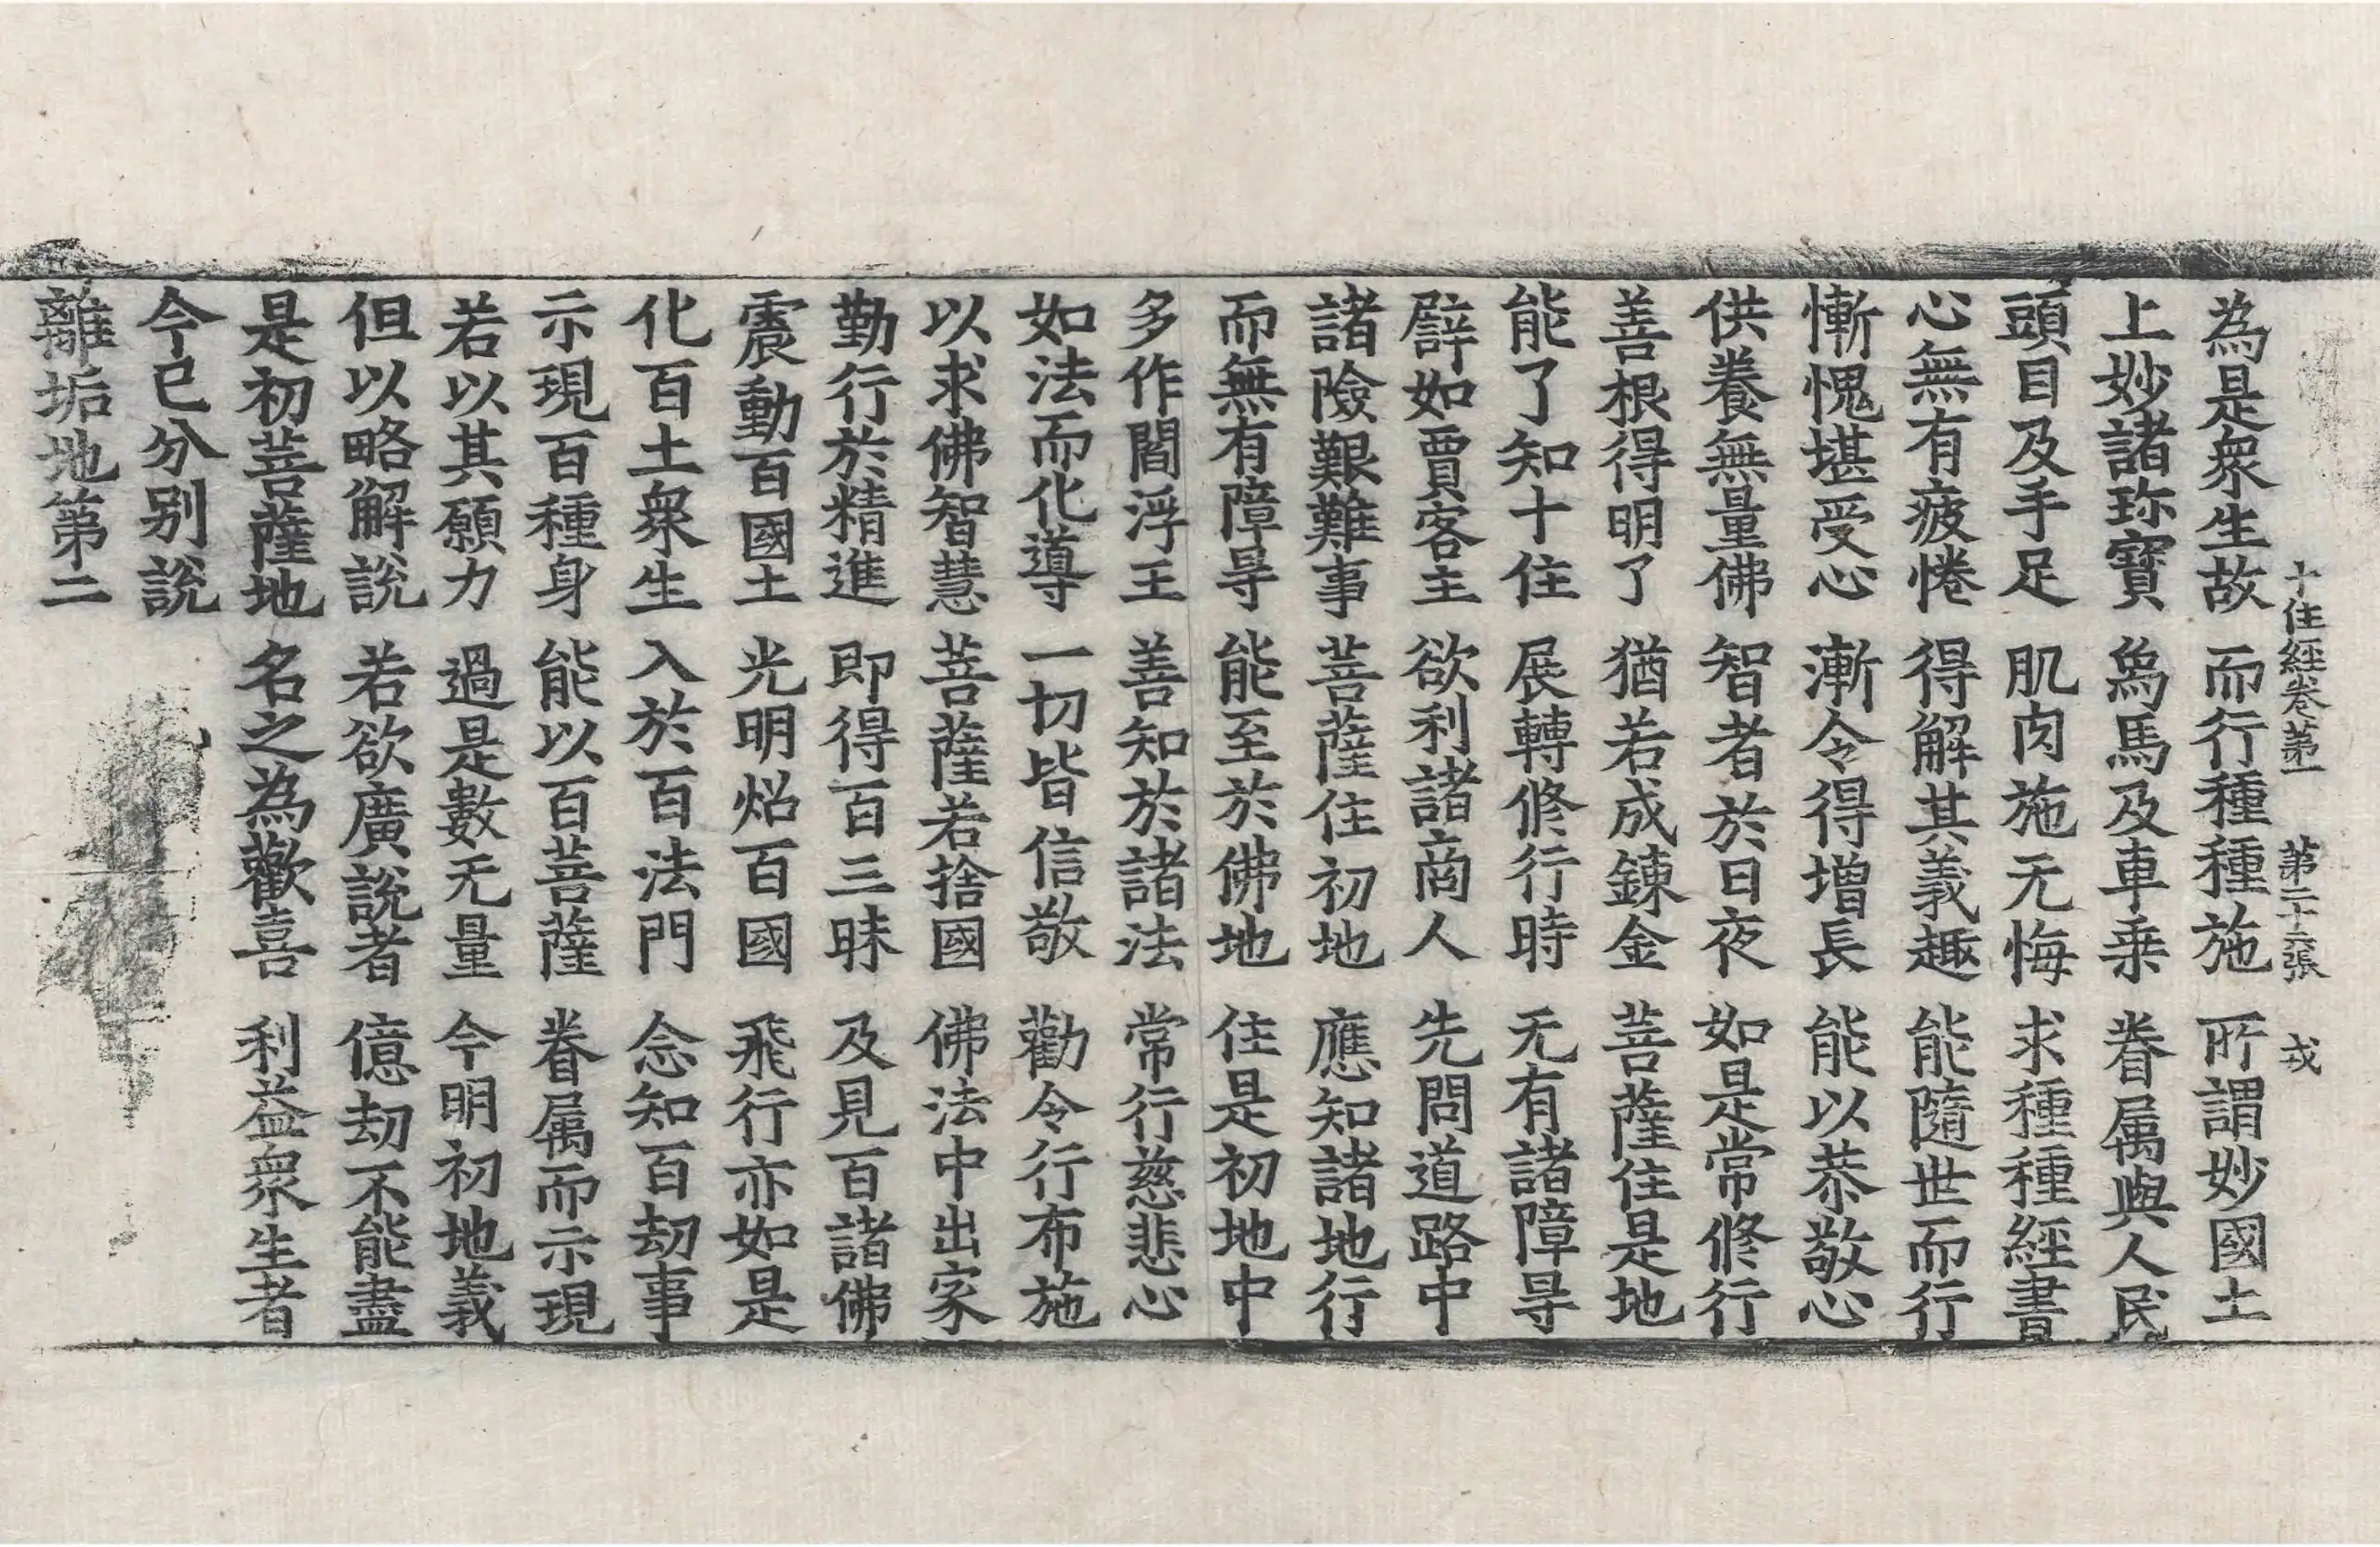 十住經卷第一 第二十六張 戎
為是衆生故 而行種種施 所謂妙國土
上妙諸珎寶 象馬及車乗 眷属與人民
頭目及手足 肌肉施无悔 求種種經書
心無有疲惓 得解其義趣 能隨世而行
慚愧堪受心 漸令得增長 能以恭敬心
供養無量佛 智者於日夜 如是常修行
善根得明了 猶若成鍊金 菩薩住是地
能了知十住 展轉修行時 无有諸障㝵
譬如賈客主 欲利諸商人 先問道路中
諸險艱難事 菩薩住初地 應知諸地行
而無有障㝵 能至於佛地 住是初地中
多作閻浮王 善知於諸法 常行慈悲心
如法而化導 一切皆信敬 勸令行布施
以求佛智慧 菩薩若捨國 佛法中出家
勤行於精進 即得百三昧 及見百諸佛
震動百國土 光明炤百國 飛行亦如是
化百土衆生 入於百法門 念知百劫事
示現百種身 能以百菩薩 眷属而示現
若以其願力 過是數无量 今明初地義
但以略解說 若欲廣說者 億劫不能盡
是初菩薩地 名之為歡喜 利益衆生者
今已分別說
離垢地第二